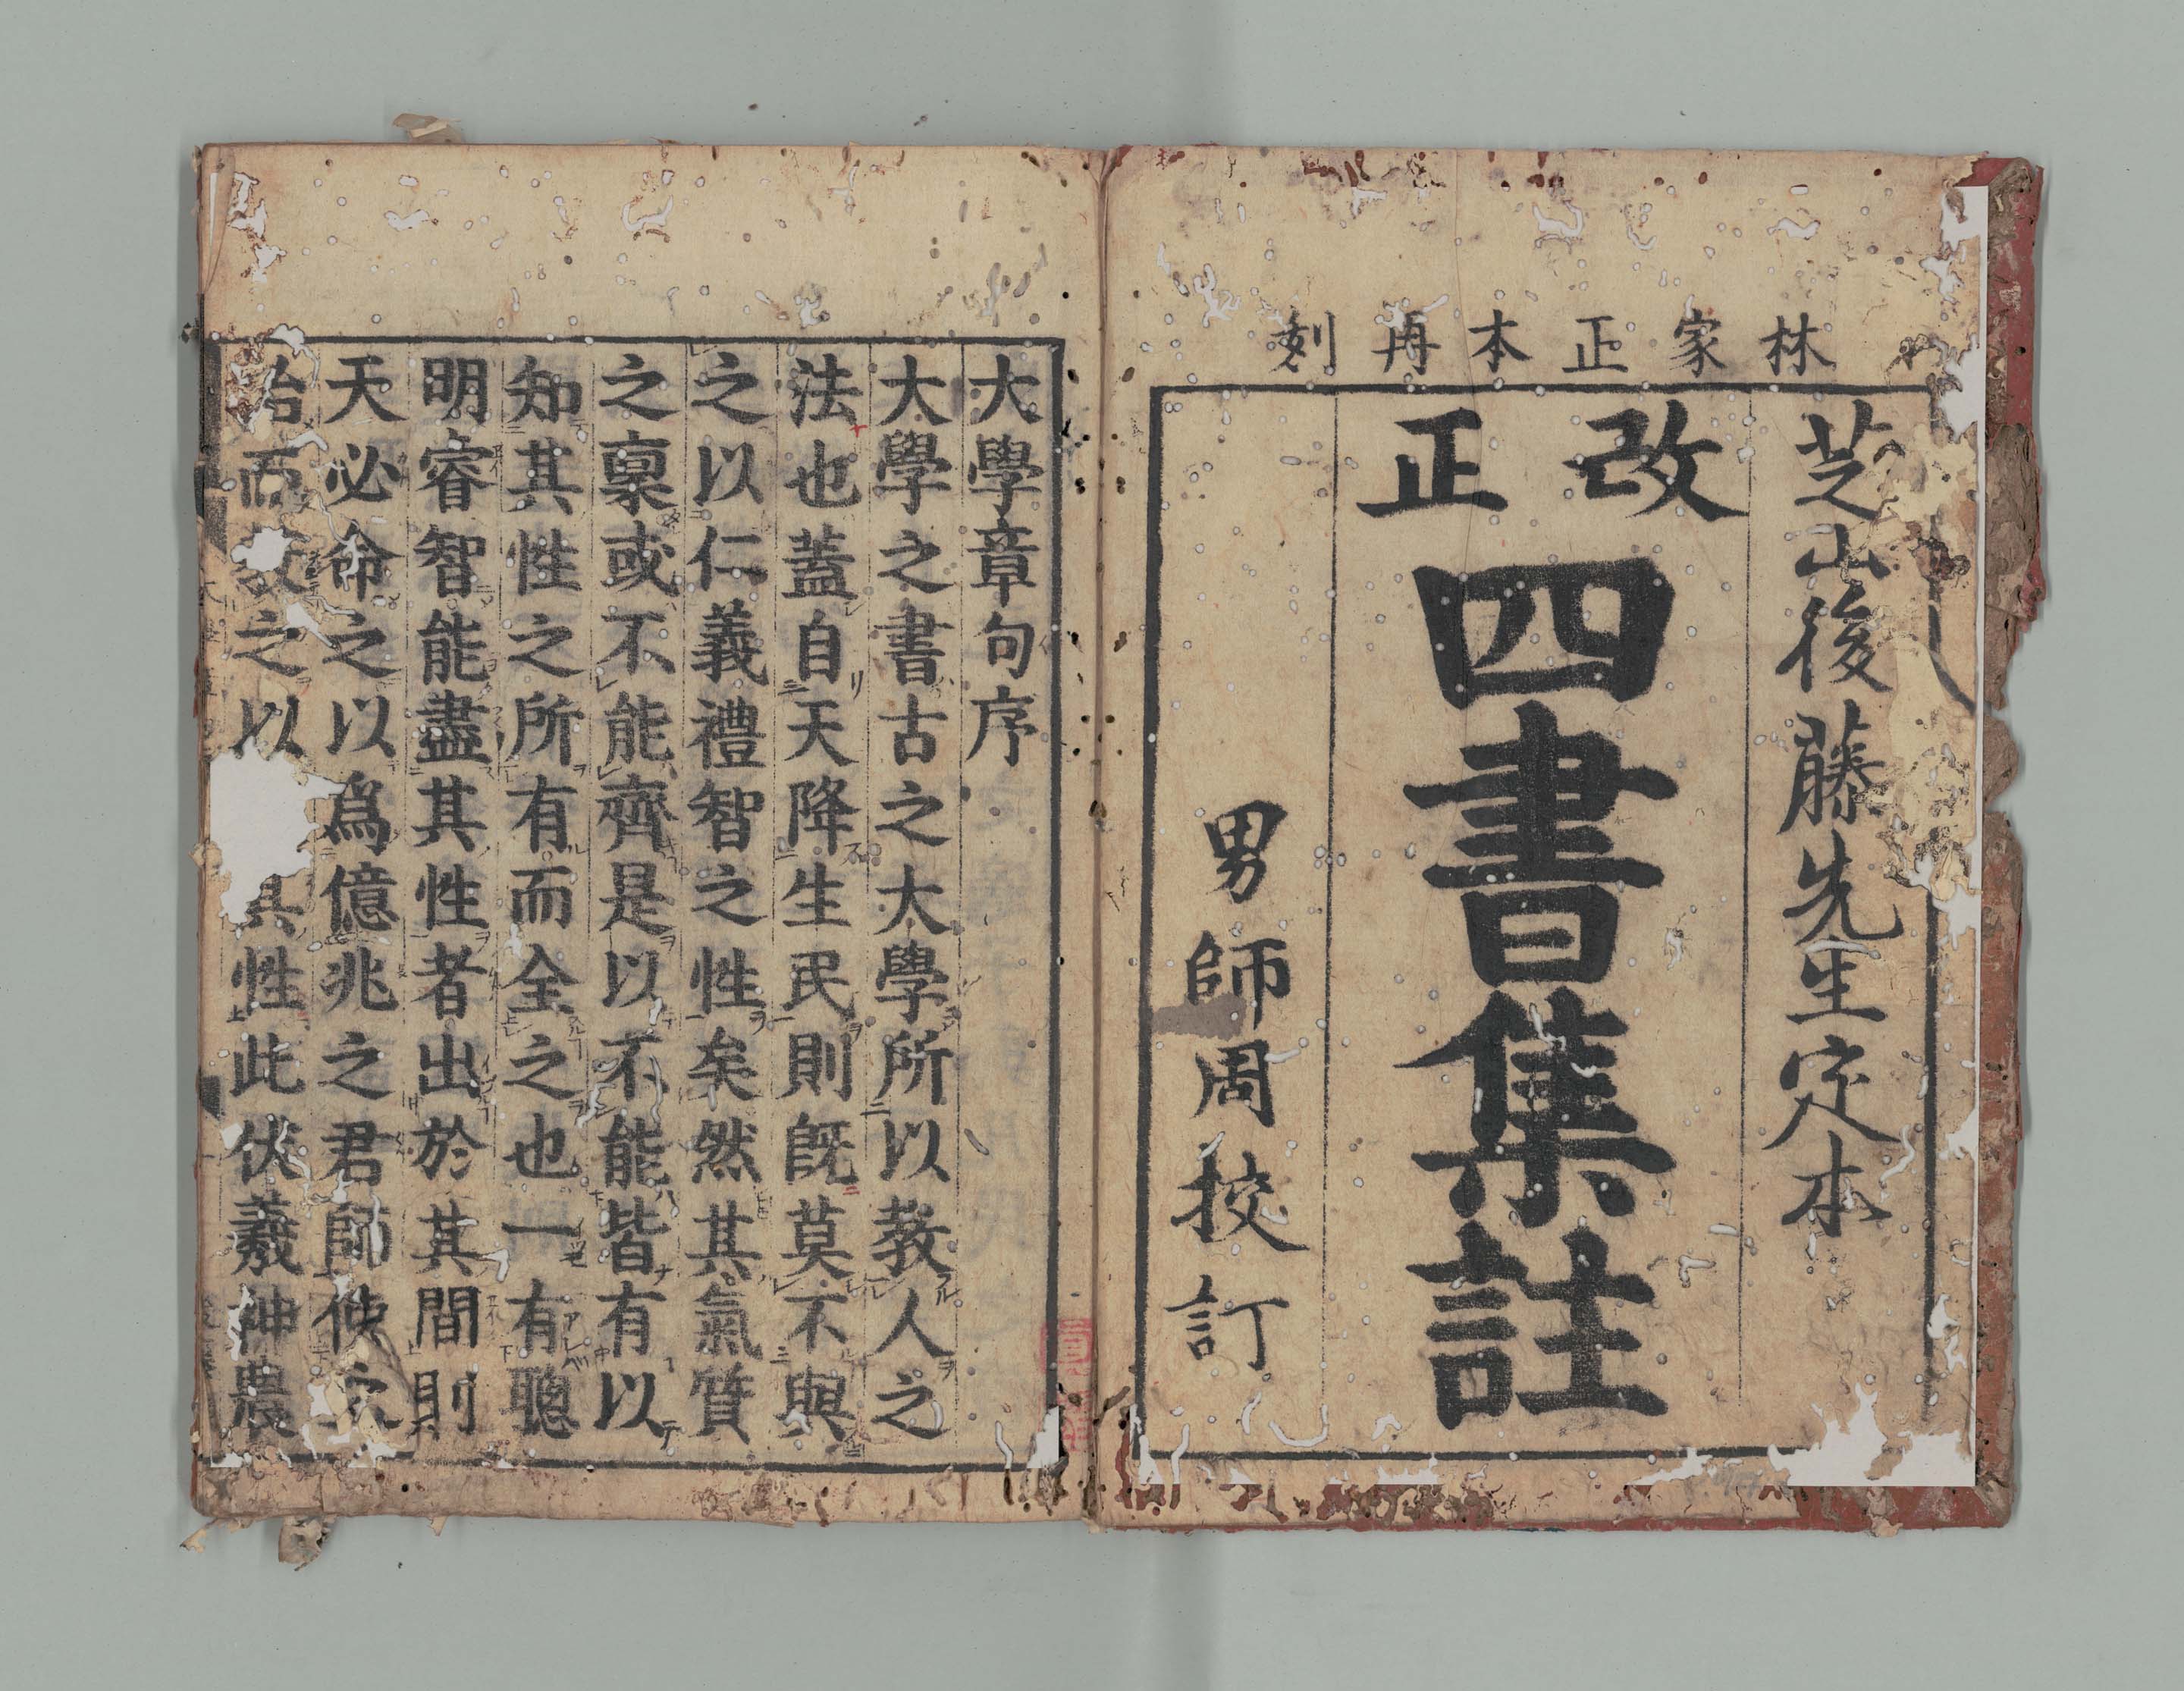 林家正本再刻
芝山後藤先生定本
改正
四書集註
男師周挍訂
大學章句序
大學之書古之大學所以教人之
法也蓋自天降生民則既莫不與
之以仁義禮智之性矣然其氣質
之稟或不能齊是以不能皆有以
知其性之所有而全之也一有聰
明睿智能盡其性者出於其間則
天必命之以爲億兆之君師使
治而教之以其性此伏羲神農